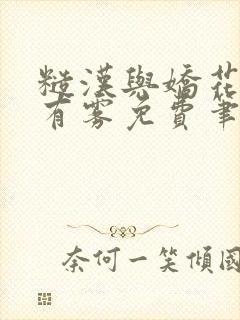 糙漢與嬌花
有霧免費筆
奈何一笑傾國